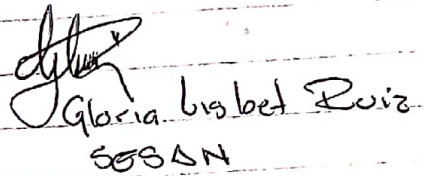 Gloria Lisbet Ruiz
SESAN